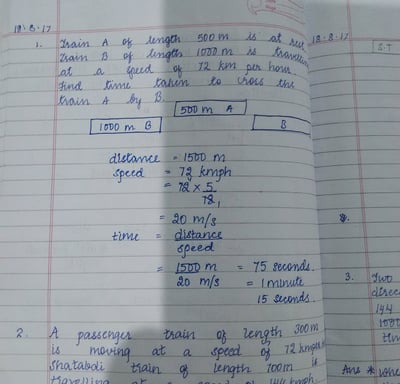 18·8·17
1. Train A of length 500 m is at rest
Train B of length 1000 m is travelli
at a speed of 72 km per hour.
Find time taken to cross the
train A by B.
500 m A
1000 m B
B
distance = 1500 m
speed = 72 kmph
= 72 × 5
18
= 20 m/s
time = distance
speed
= 1500 m = 75 seconds.
20 m/s = 1 minute
15 seconds.
2. A passenger train of length 300m
is moving at a speed of 72 kmph
Shatabdi train of length 700m is
travelling at a speed of 144 kmph
18·8·17
S.T
3. Two
direc
144
1000
tim
Ans * whe